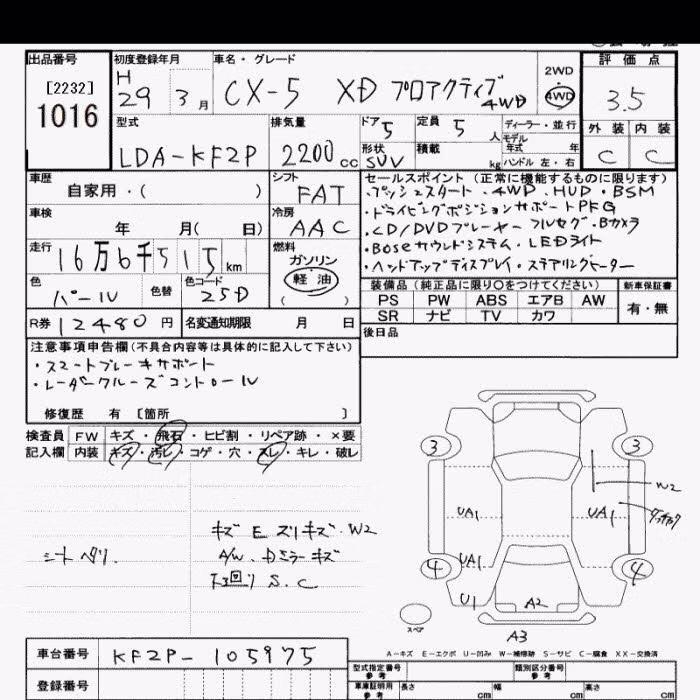 出品番号 初度登録年月 車名・グレード 2WD 評価点
[2232] H
1016 29 3月 CX-5 XD プロアクティブ 4WD 4WD 3.5
型式 排気量 ドア 5 定員 5人 ディーラー・並行 外装 内装
LDA-KF2P 2200cc 形状 SUV 積載 kg モデル年式 年 ハンドル 左・右 C C
車歴 シフト セールスポイント(正常に機能するものに限ります)
自家用・( ) FAT ・プッシュスタート・4WD・HUD・BSM
車検 冷房 ・ドライビングポジションサポートPKG
年 月( 日) AAC ・CD/DVDプレーヤー フルセグ・Bカメラ
走行 燃料 ・BOSEサウンドシステム・LEDライト
16万6千515km ガソリン ・ヘッドアップディスプレイ・ステアリングヒーター
色 色替 色コード 軽油
パール 25D ( ) 装備品(純正品に限り○をつけてください) 新車保証書
PS PW ABS エアB AW 有・無
R券 12480円 名変通知期限 月 日 SR ナビ TV カワ
注意事項申告欄(不具合内容等は具体的に記入して下さい) 後日品
・スマートブレーキサポート
・レーダークルーズコントロール
修復歴 有 [箇所 ]
検査員 FW キズ・飛石・ヒビ割・リペア跡・×要
記入欄 内装 キズ・汚レ・コゲ・穴・スレ・キレ・破レ
3 3
W2
UA1 UA1
キズ E ズリキズ・W2
シートヘタリ. A/W・Dミラーキズ
下回り S.C
UA1
4 4
U1 A2
スペア
A3
A-キズ E-エクボ U-凹み W-補修跡 S-サビ C-腐食 XX-交換済
車台番号 KF2P-105975
型式指定番号 参考 類別区分番号 参考
登録番号 車庫証明用参考 長さ cm 幅 cm 高さ cm